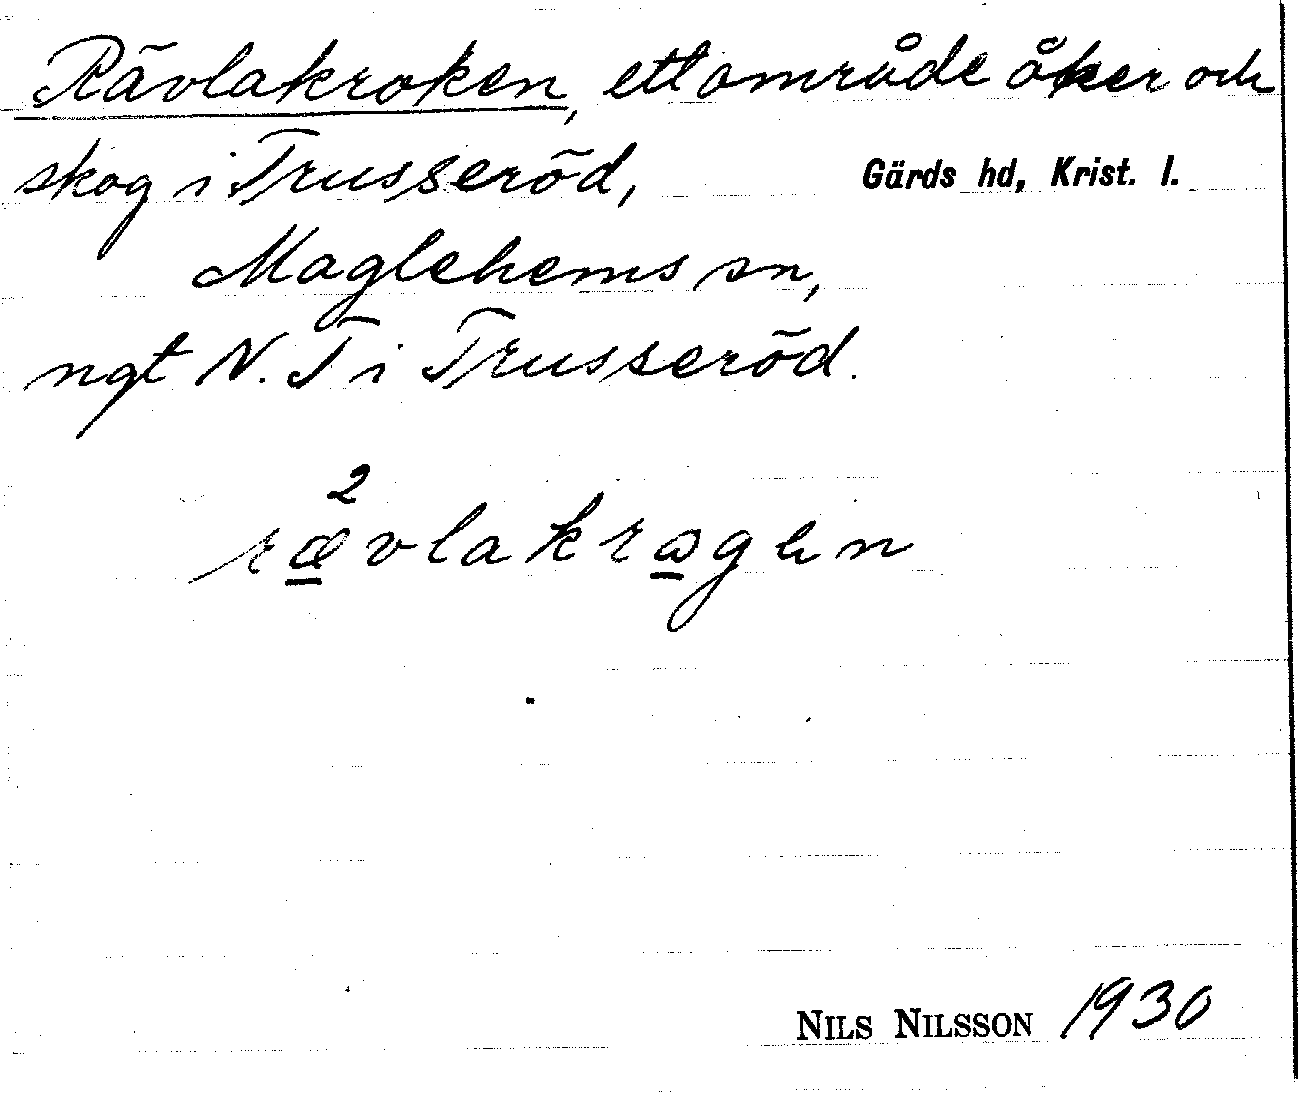 Rävlakroken, ett område åker och
skog i Trusseröd, Gärds hd, Krist. l.
Maglehems sn,
ngt N. T i Trusseröd.
2
rævlakrogen
NILS NILSSON 1930